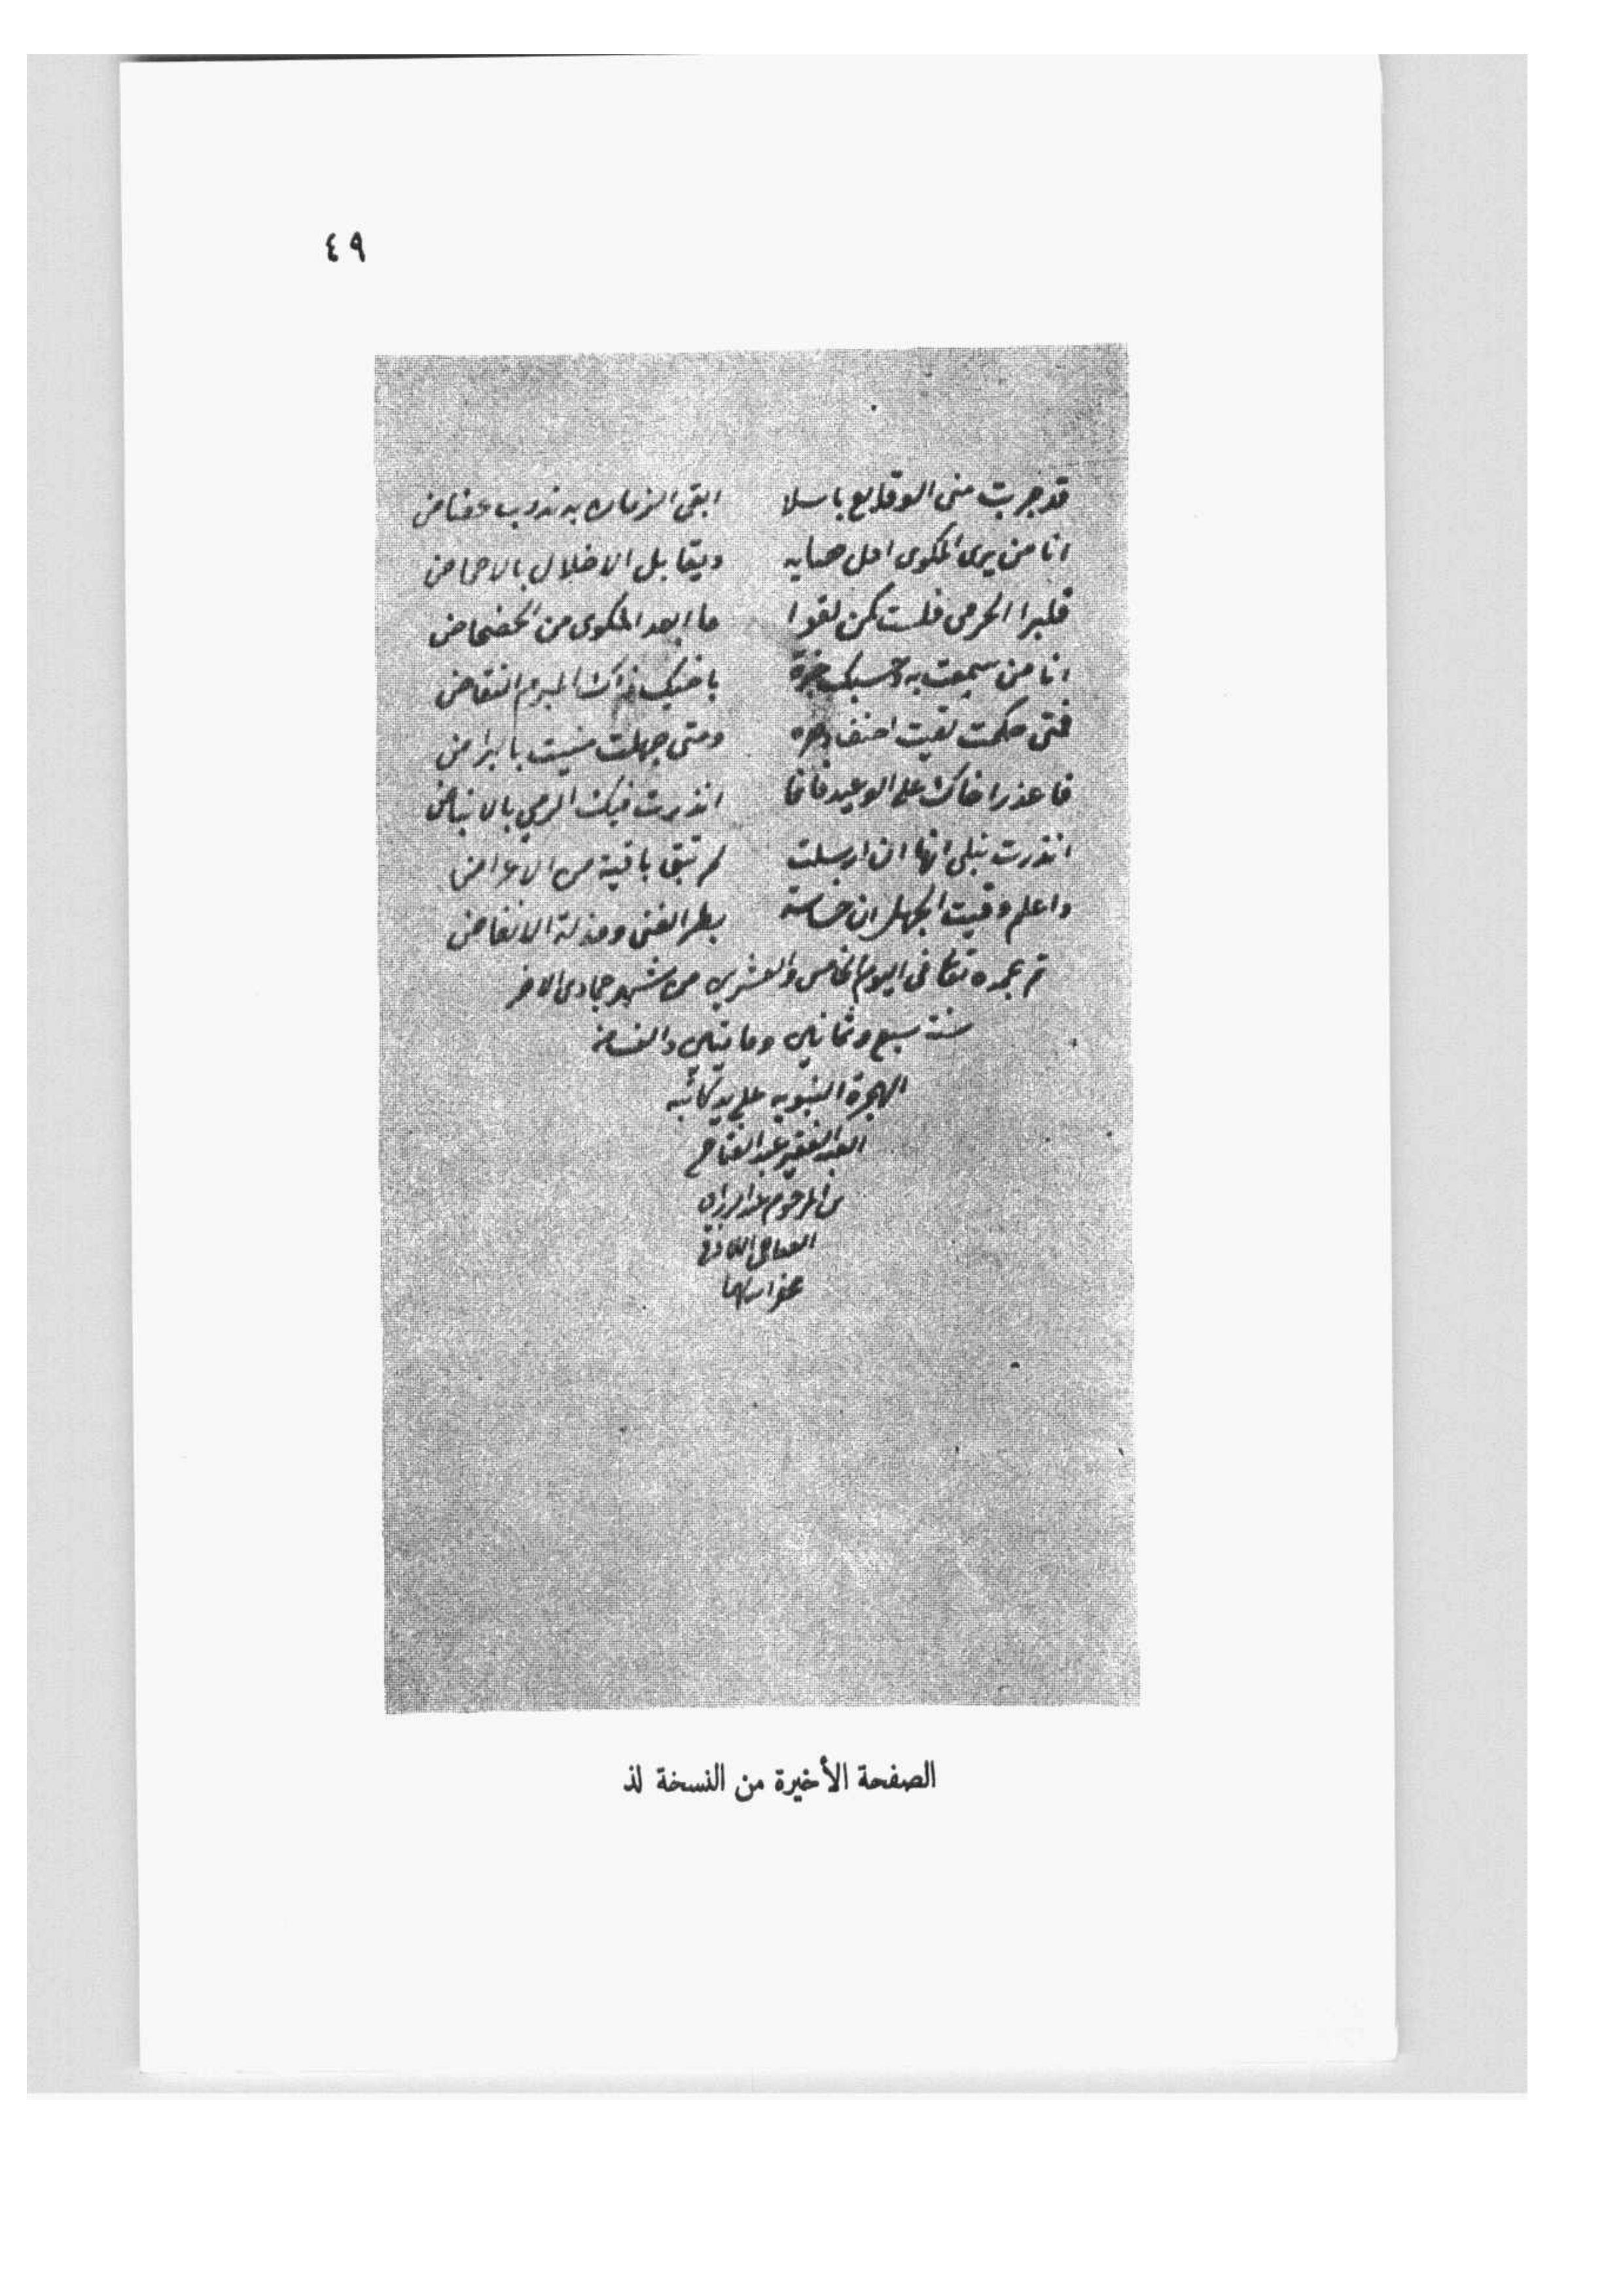 ٤٩
قد جربت منى الوقايع باسلا ابقى الزمان به ندوب عضاض
انا من يرى المكوى احلى صبابه ويقابل الاخلال بالاحماض
فلست كمن لقوا ما ابعد المكوى من الخضخاض
انا من سمعت به وحسبك خبرة
فمتى حكمت لقيت احنف دهره ومتى جهلت منيت بالبراض
فاعذر اخاك على الوعيد فانما انذرت قبل الرمي بالانباض
انذرت نبلى انها ان ارسلت لم تبق باقية من الاعراض
واعلم وقيت الجهل ان خساسة بطر الغنى ومذلة الانفاض
تم بحمده تعا فى اليوم الخامس والعشرين من شهر جمادى الاخر
سنت سبع وثمانين ومايتين والف من
الهجرة النبويه على يد كاتبه
العبد الفقير عبد الفتاح
بن المرحوم
عفى الله عنهما
الصفحة الأخيرة من النسخة لذ